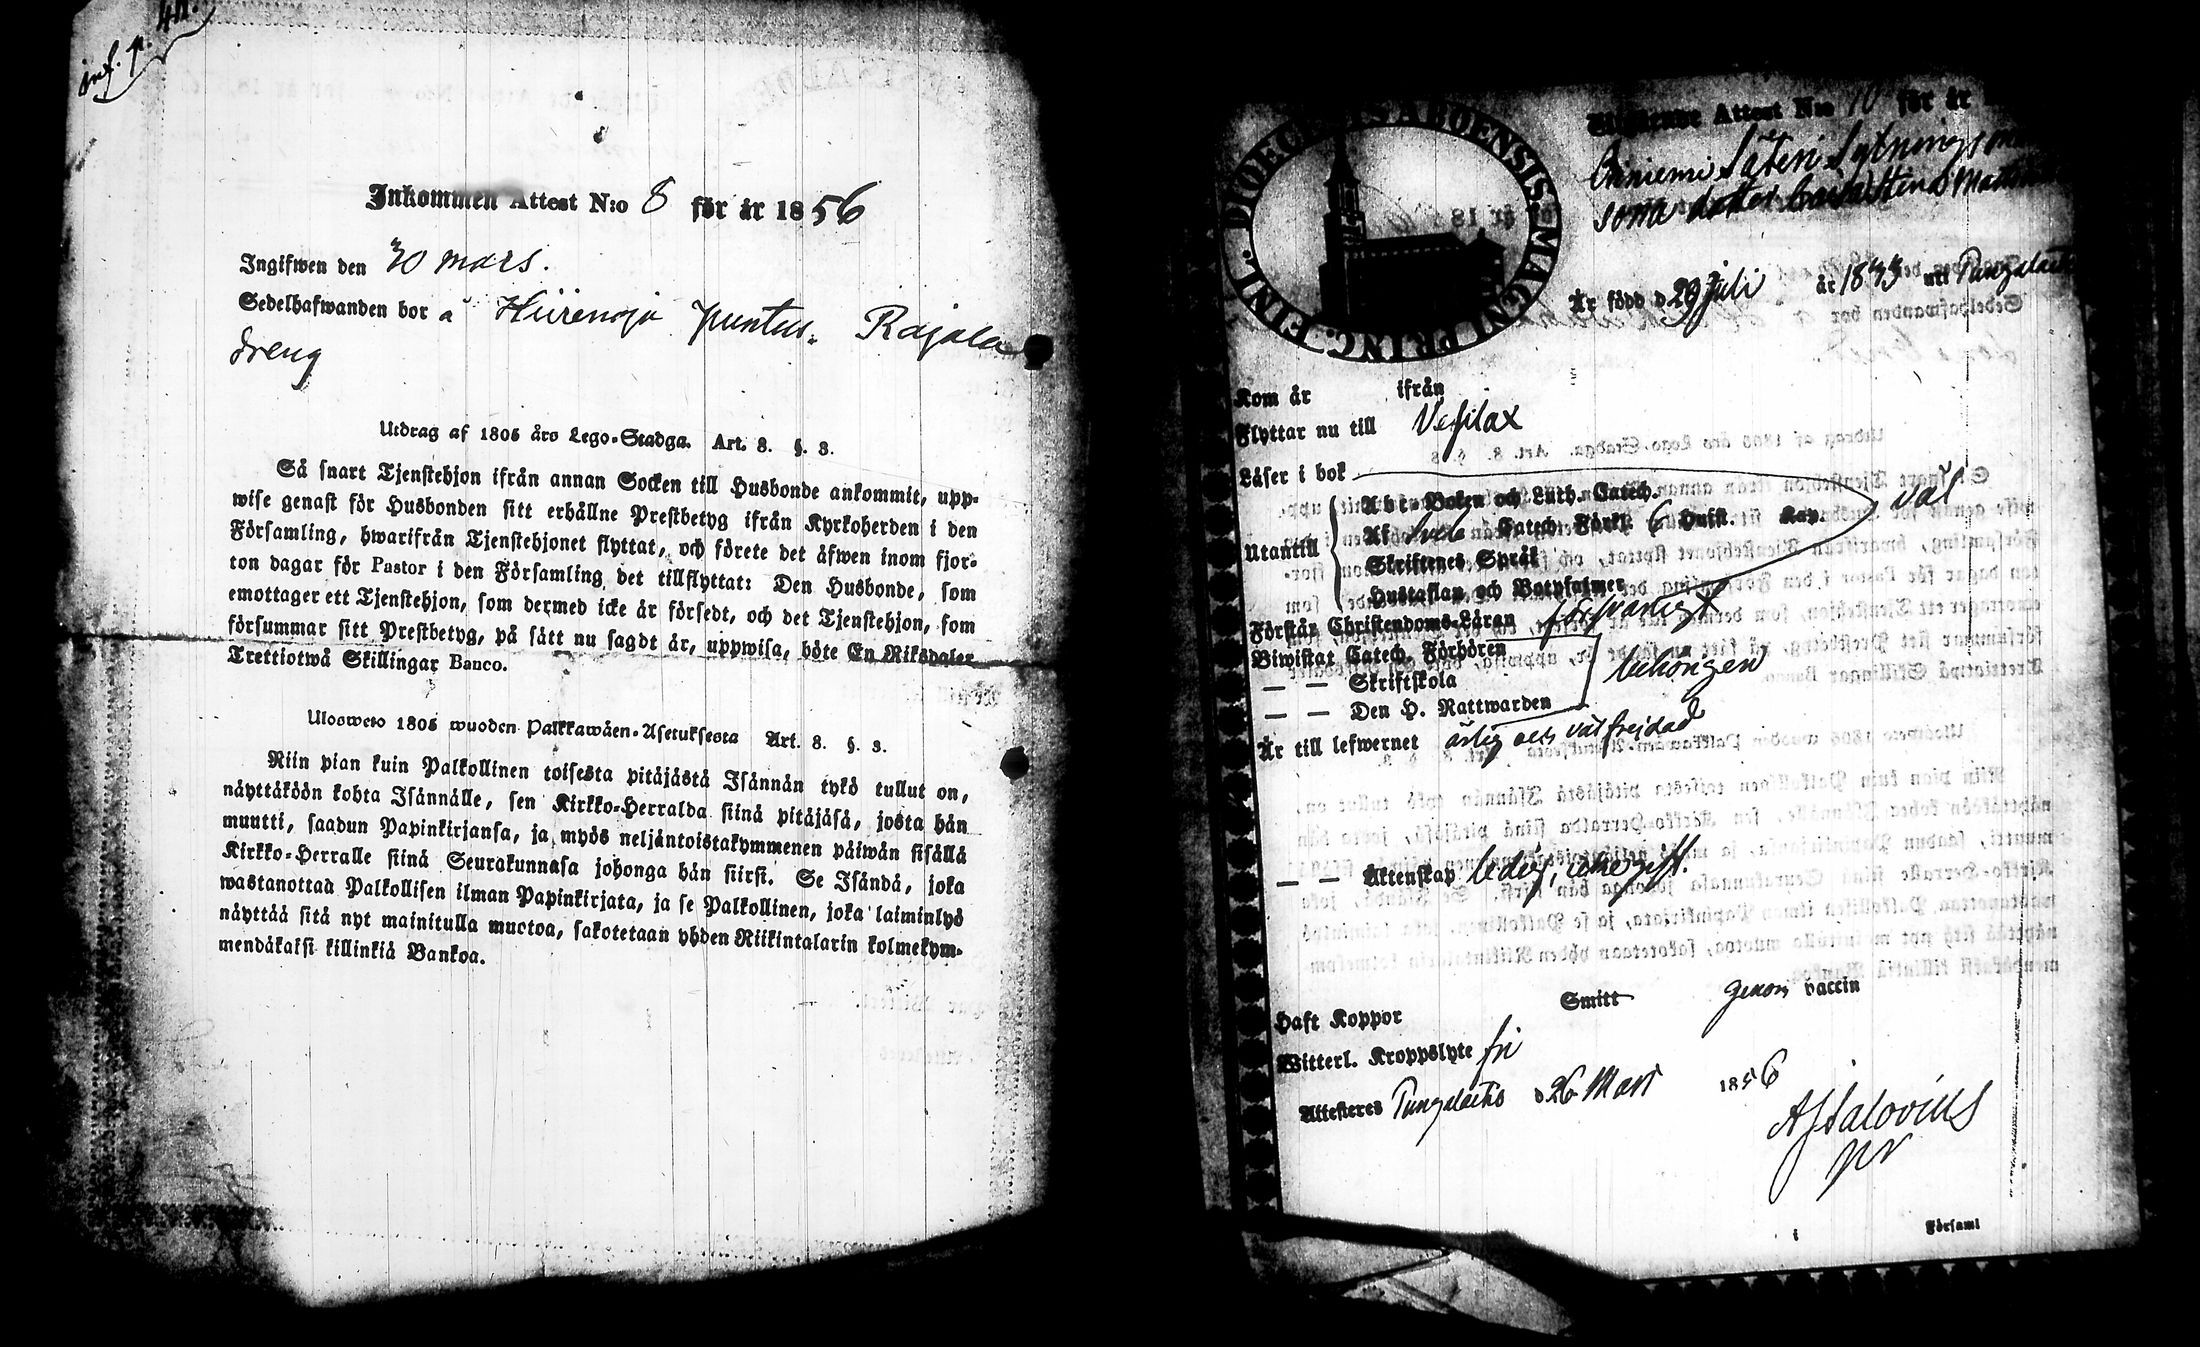 inf. p. 44.
Inkommen Attest N:o 8 för år 1856
Ingifwen den 30 mars.
Sedelhafwanden bor å Hiirenoja puntus. Rajala
dreng
Utdrag af 1805 års Lego-Stadga. Art. 8. §. 3.
Så snart Tjenstehjon ifrån annan Socken till Husbonde ankommit, upp-
wise genast för Husbonden sitt erhållne Prestbetyg ifrån Kyrkoherden i den
Församling, hwarifrån Tjenstehjonet flyttat, och förete det äfwen inom fjor-
ton dagar för Pastor i den Församling det tillflyttat: Den Husbonde, som
emottager ett Tjenstehjon, som dermed icke är försedt, och det Tjenstehjon, som
försummar sitt Prestbetyg, på sätt nu sagdt är, uppwisa, böte En Riksdaler
Trettiotwå Skillingar Banco.
Ulosweto 1805 wuoden Palkkawäen-Asetuksesta Art. 8. §. 3.
Niin pian kuin Palkollinen toisesta pitäjästä Isännän tykö tullut on,
näyttäköön kohta Isännälle, sen Kirkko-Herralda siinä pitäjäsä, josta hän
muutti, saadun Papinkirjansa, ja myös neljäntoistakymmenen päiwän sisällä
Kirkko-Herralle siinä Seurakunnasa johonga hän siirsi. Se Isändä, joka
wastanottaa Palkollisen ilman Papinkirjata, ja se Palkollinen, joka laiminlyö
näyttää sitä nyt mainitulla muotoa, sakotetaan yhden Riikintalarin kolmekym-
mendäkaksi killinkiä Bankoa.
DIOECESIS ABOENSIS MAGNI PRINC. FINL.
Utgående Attest N:o 10 för år
Säteri Sytnings
dotter
Är född d 29 Juli år 1833 uti Pungalaitio
Kom år ifrån
Flyttar nu till Vesilax
Läser i bok
Utantill
Abc-Boken och Luth. Catech.
Af Sveb Catech. Förkl. 6 Hufst. Kap.
Skriftenes Språk
Hustaflan och Botpsalmer
väl
Förstår Christendoms-Läran försvarligt
Biwistat Catech. Förhören
— — Skriftskola
— — Den H. Nattwarden
behörigen
Är till lefwernet ärlig och välfrejdad
— — Äktenskap ledig, icke gift.
Haft Koppor Smitt genom vaccin
Witterl. Kroppslyte fri
Attesteres Pungalaitio d 26 Mars 1856
AJSalovius
i Församl